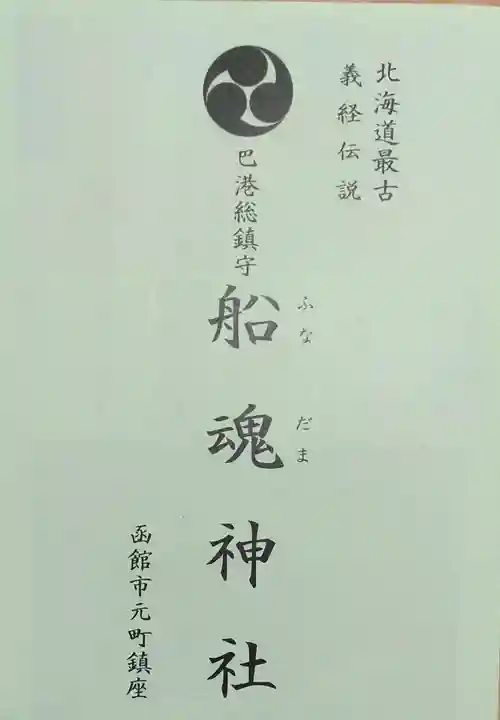 北海道最古
義経伝説
巴港総鎮守
船魂神社
ふなだま
函館市元町鎮座